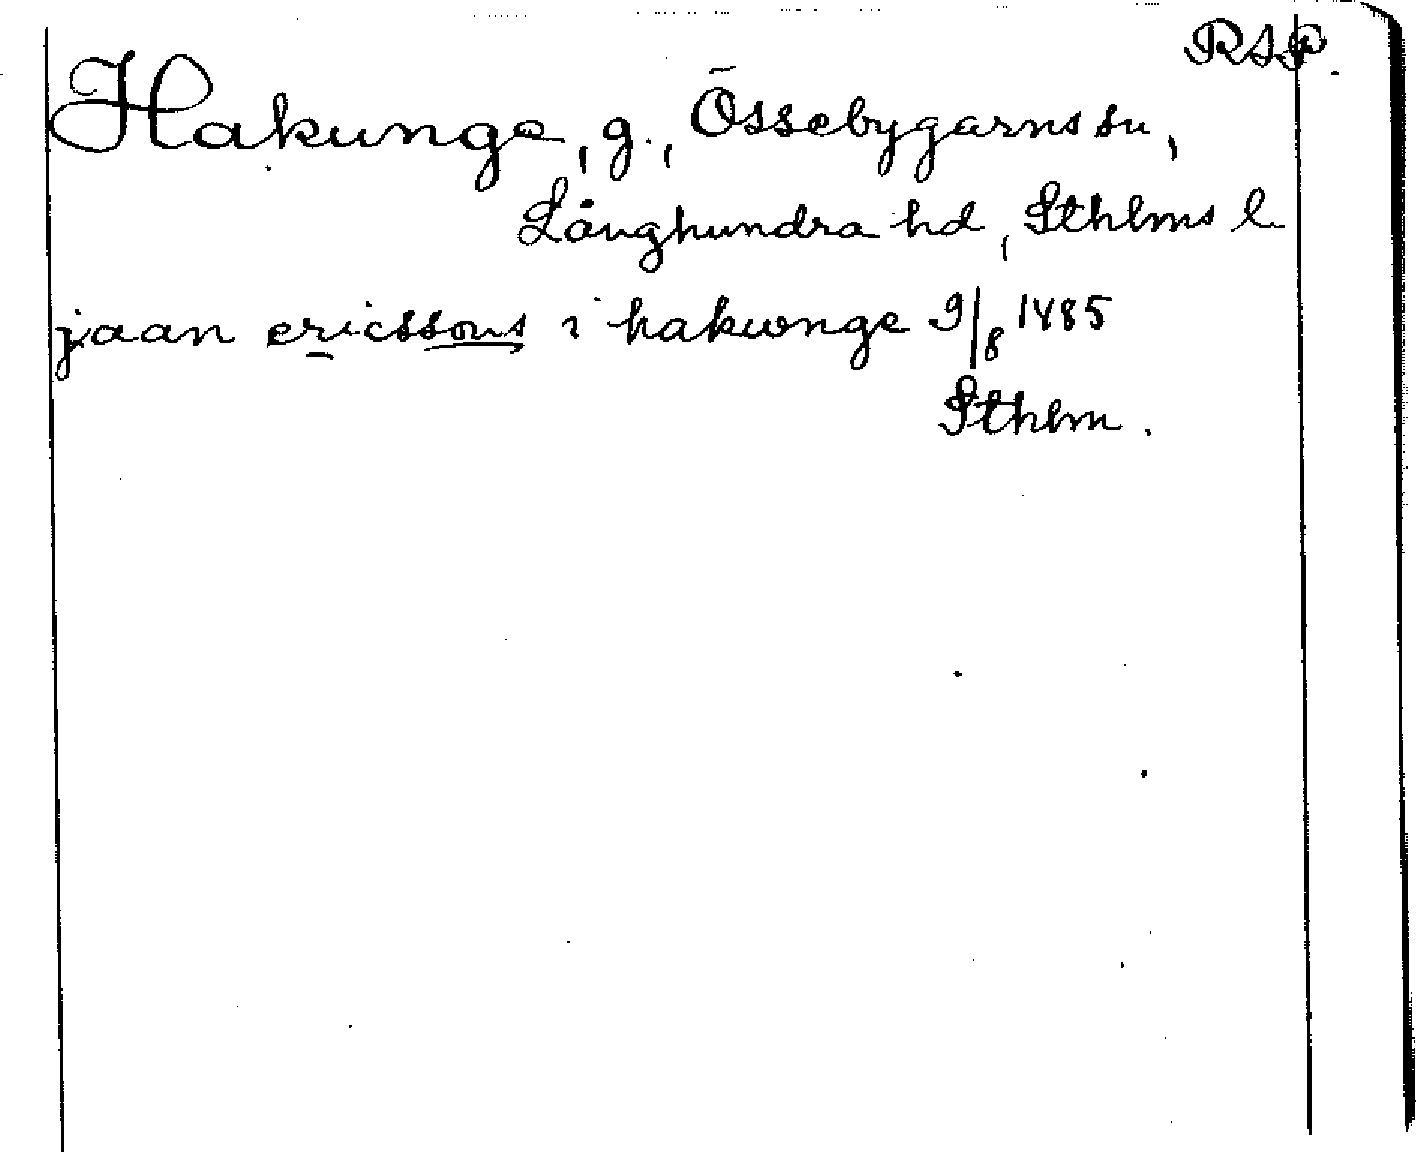 RAP.
Hakunge, g., Össebygarns sn,
Långhundra hd, Sthlms l
jaan ericssons i hakwnge 9/8 1485
Sthlm.